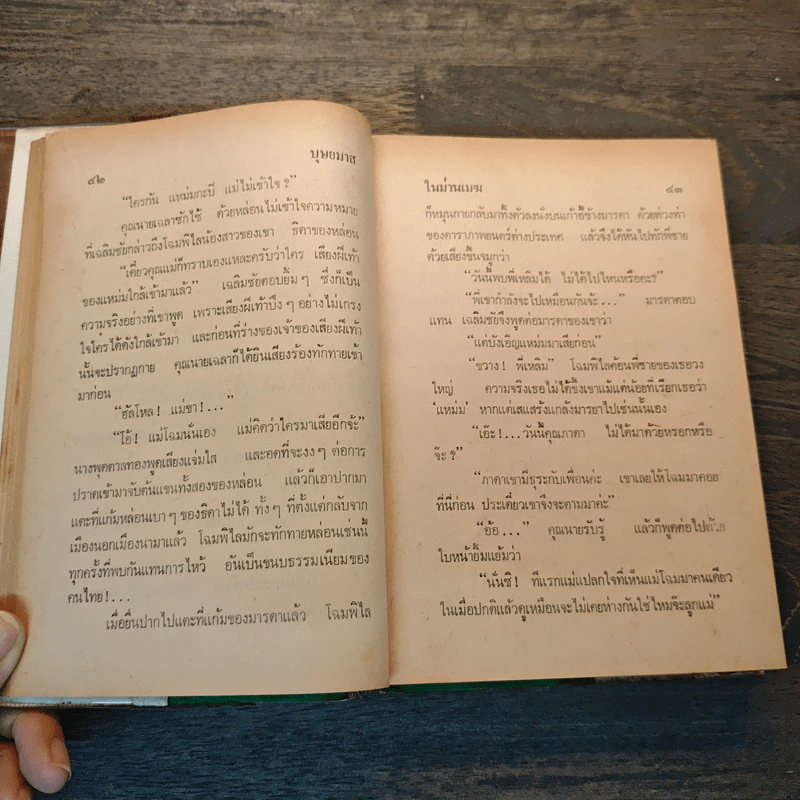 ๔๒
บุษยมาส
“ใครกัน แหม่มกะบี แม่ไม่เข้าใจ?”
คุณนายเฉลาซักไซ้ ด้วยหล่อนไม่เข้าใจความหมาย
ที่เฉลิมชัยกล่าวถึงโฉมพิไลน้องสาวของเขา ธิดาของหล่อน
“เดี๋ยวคุณแม่ก็ทราบเองแหละครับว่าใคร เสียงฝีเท้า
ของแหม่มใกล้เข้ามาแล้ว” เฉลิมชัยตอบยิ้มๆ ซึ่งก็เป็น
ความจริงอย่างที่เขาพูด เพราะเสียงฝีเท้าปึงๆ อย่างไม่เกรง
ใจใครได้ดังใกล้เข้ามา และก่อนที่ร่างของเจ้าของเสียงฝีเท้า
นั้นจะปรากฏกาย คุณนายเฉลาก็ได้ยินเสียงร้องทักทายเข้า
มาก่อน
“ฮัลโหล! แม่ขา!...”
“โอ้! แม่โฉมนั่นเอง แม่คิดว่าใครมาเสียอีกจ้ะ”
นางพูดตาลทองพูดเสียงแจ่มใส และอดที่จะงงๆ ต่อการ
ปราดเข้ามาจับต้นแขนทั้งสองของหล่อน แล้วก็เอาปากมา
แตะที่แก้มหล่อนเบาๆ ของธิดาไม่ได้ ทั้งๆ ที่ตั้งแต่กลับจาก
เมืองนอกเมืองนามาแล้ว โฉมพิไลมักจะทักทายหล่อนเช่นนี้
ทุกครั้งที่พบกันแทนการไหว้ อันเป็นขนบธรรมเนียมของ
คนไทย!...
เมื่อยื่นปากไปแตะที่แก้มของมารดาแล้ว โฉมพิไล
ในม่านเมฆ
๔๓
ก็หมุนกายกลับมาทิ้งตัวลงนั่งบนเก้าอี้ข้างมารดา ด้วยท่วงท่า
ของดาราภาพยนตร์ต่างประเทศ แล้วจึงได้หันไปทักพี่ชาย
ด้วยเสียงขึ้นจมูกว่า
“วันนี้พบพี่เหลิมได้ ไม่ได้ไปไหนหรือคะ?”
“พี่เขากำลังจะไปเหมือนกันจ้ะ...” มารดาตอบ
แทน เฉลิมชัยจึงพูดต่อมารดาของเขาว่า
“แต่บังเอิญแหม่มมาเสียก่อน”
“ขวาง! พี่เหลิม” โฉมพิไลค้อนพี่ชายของเธอวง
ใหญ่ ความจริงเธอไม่ได้ขึ้งเขาแม้แต่น้อยที่เรียกเธอว่า
‘แหม่ม’ หากแต่เสแสร้งแกล้งมารยาไปเช่นนั้นเอง
“เอ๊ะ!...วันนี้คุณภาดา ไม่ได้มาด้วยหรอกหรือ
จ๊ะ?”
“ภาดาเขามีธุระกับเพื่อนค่ะ เขาเลยให้โฉมมาคอย
ที่นี่ก่อน ประเดี๋ยวเขาจึงจะตามมาค่ะ”
“อ้อ...” คุณนายรับรู้ แล้วก็พูดต่อไปด้วย
ใบหน้ายิ้มแย้มว่า
“นั่นซิ! ทีแรกแม่แปลกใจที่เห็นแม่โฉมมาคนเดียว
ในเมื่อปกติแล้วดูเหมือนจะไม่เคยห่างกันใช่ไหมจ๊ะลูกแม่”